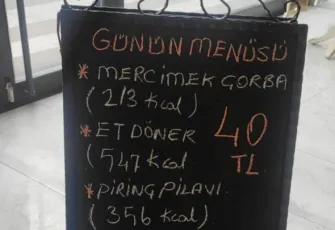 GÜNÜN MENÜSÜ
* MERCİMEK ÇORBA
(213 kcal)
* ET DÖNER 40
(547 kcal TL
* PİRİNÇ PİLAVI
(356 kcal)